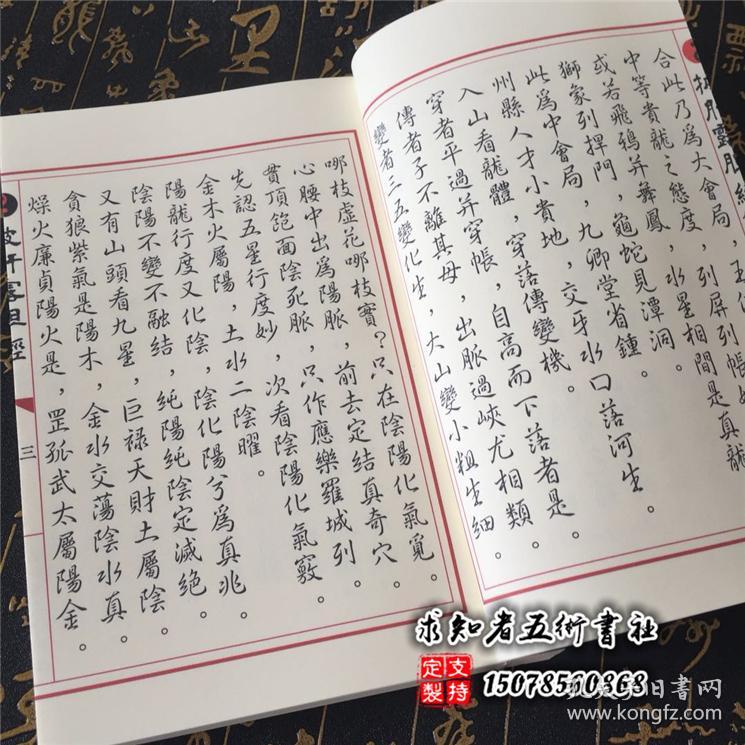 合此乃爲大會局，
中等貴龍之態度，水星相間是真龍
或若飛鴉并舞鳳，龜蛇見潭洞。
獅象列捍門，九卿堂省鍾。
此爲中會局，交牙水口落河生。
州縣人才小貴地，穿落傳變機。
入山看龍體，自高而下落者是。
穿者平過并穿帳，出脈過峽尤相類。
傳者子不離其母，大山變小粗生細。
變者二五變化生，
哪枝虛花哪枝實？只在陰陽化氣覓。
心腰中出爲陽脈，前去定結真奇穴。
貫頂飽面陰死脈，只作應樂羅城列。
先認五星行度妙，次看陰陽化氣竅。
金木火屬陽，土水二陰曜。
陽龍行度又化陰，陰化陽兮爲真兆。
陰陽不變不融結，純陽純陰定滅絕。
又有山頭看九星，巨祿天財土屬陰。
貪狼紫氣是陽木，金水交蕩陰水真。
燥火廉貞陽火是，罡孤武太屬陽金。
三
求知者五術書社
支持定製
15078510868
旧書网
www.kongfz.com